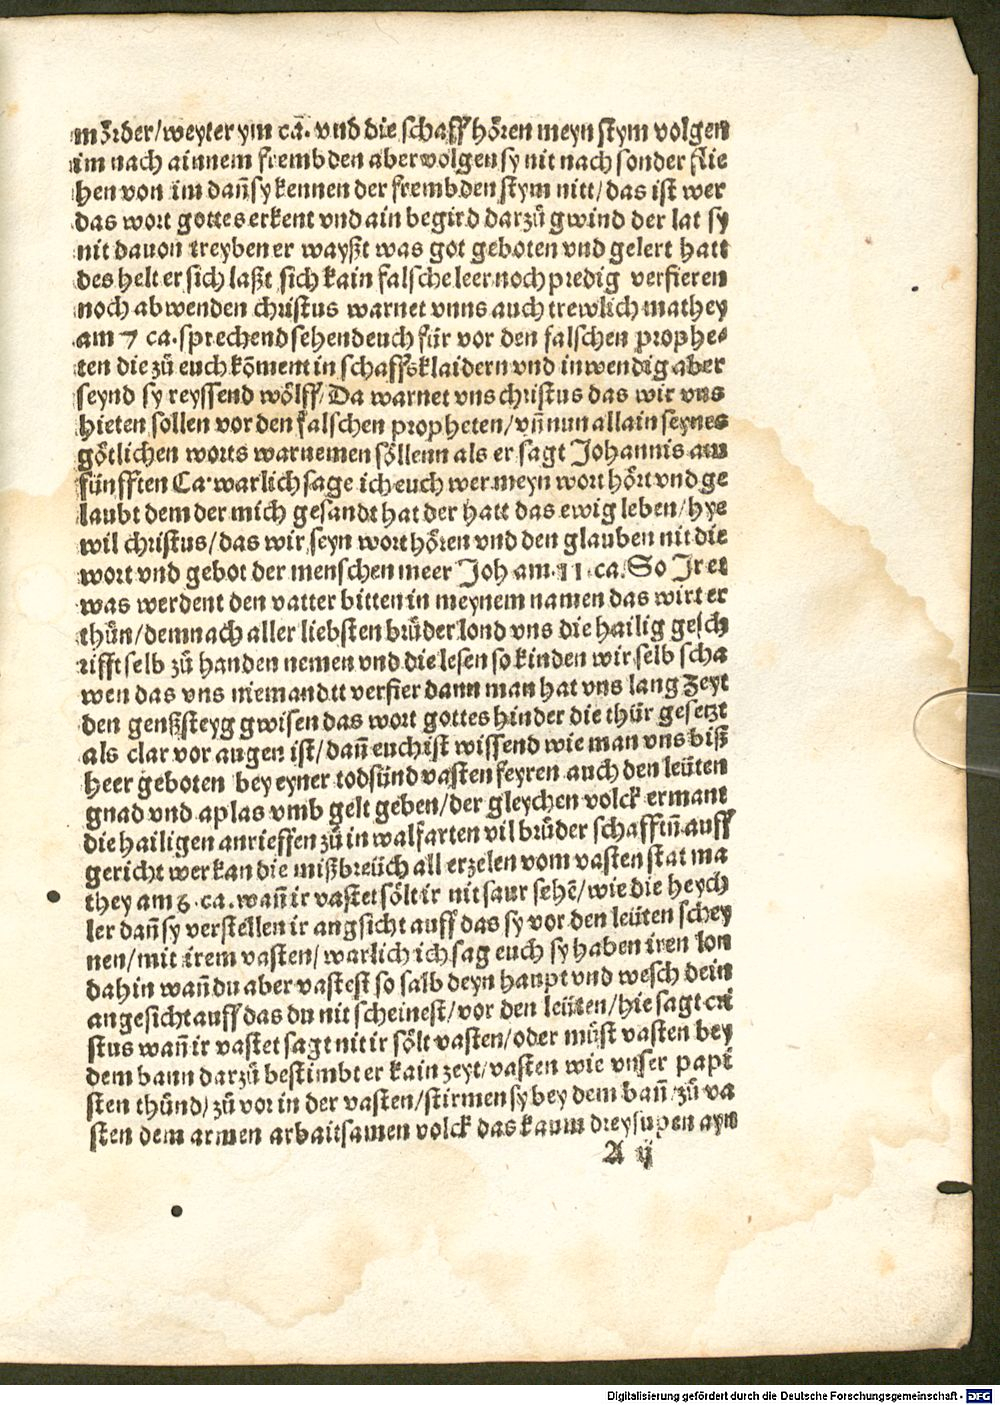 mörder/weyter ym ca. vnd die schaff hören meyn stym volgen
im nach ainnem frembden aber volgen sy nit nach sonder flie
hen von im dañ sy kennen der frembden stym nitt/das ist wer
das wort gottes erkent vnd ain begird darzů gwind der lat sy
nit dauon treyben er wayßt was got geboten vnd gelert hatt
des helt er sich laßt sich kain falsche leer noch predig verfieren
noch abwenden christus warnet vnns auch trewlich mathey
am 7 ca. sprechend sehend euch für vor den falschen prophe⸗
ten die zů euch kõment in schaffsklaidern vnd inwendig aber
seynd sy reyssend wölff/Da warnet vns christus das wir vns
hieten sollen vor den falschen propheten/vñ nun allain seynes
götlichen worts warnemen söllenn als er sagt Johannis am
fünfften Ca. warlich sage ich euch wer meyn wort hört vnd ge
laubt dem der mich gesandt hat der hatt das ewig leben/hye
wil christus/das wir seyn wort hören vnd den glauben nit die
wort vnd gebot der menschen meer Joh am .11. ca. So Jr et
was werdent den vatter bitten in meynem namen das wirt er
thůn/demnach aller liebsten brüder lond vns die hailig gesch
rifft selb zů handen nemen vnd die lesen so kinden wir selb scha
wen das vns niemandtt verfier dann man hat vns lang zeyt
den genßsteyg gwisen das wort gottes hinder die thür gesetzt
als clar vor augen ist/dañ euch ist wissend wie man vns biß
heer geboten bey eyner todsünd vasten feyren auch den leüten
gnad vnd aplas vmb gelt geben/der gleychen volck ermant
die hailigen anrieffen zů in walfarten vil brüder schafften auff
gericht wer kan die mißbreüch all erzelen vom vasten stat ma
they am 6. ca. wañ ir vastet sölt ir nit saur sehẽ/wie die heych
ler dañ sy verstellen ir angsicht auff das sy vor den leüten schey
nen/mit irem vasten/warlich ich sag euch sy haben iren lon
dahin wañ du aber vastest so salb deyn haupt vnd wesch dein
angesicht auff das du nit scheinest/vor den leüten/hie sagt cri
stus wañ ir vastet sagt nit ir sölt vasten/oder můst vasten bey
dem bann darzů bestimbt er kain zeyt/vasten wie vnser papi
sten thůnd/zů vor in der vasten/stirmen sy bey dem bañ/zů va
sten dem armen arbaitsamen volck das kaum drey supen ayn
A ij
Digitalisierung gefördert durch die Deutsche Forschungsgemeinschaft - DFG